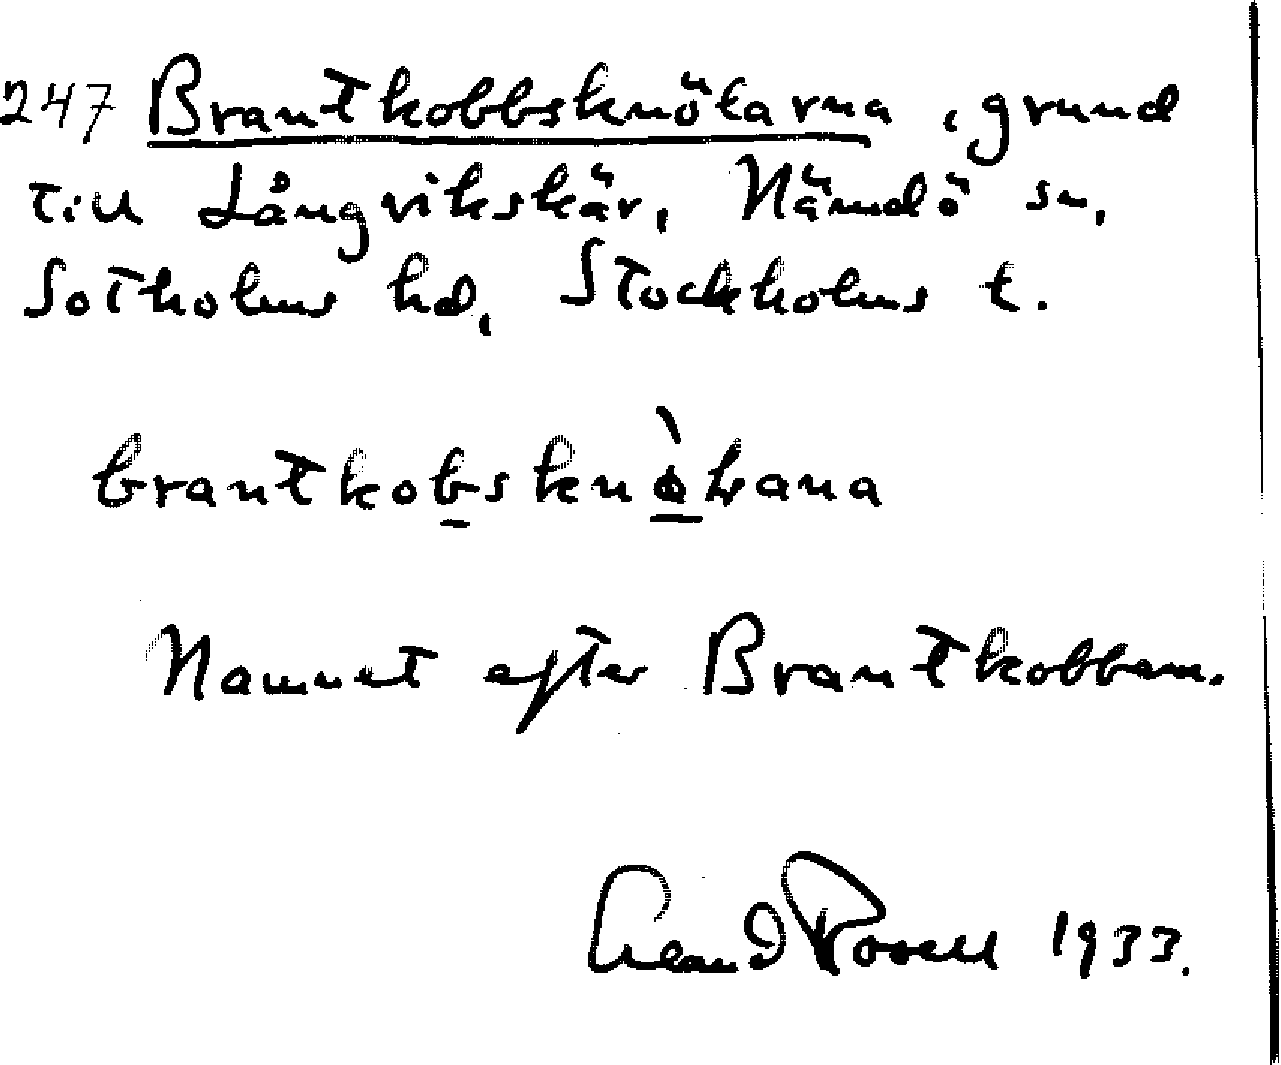 247 Brantkobbsknölarna, grund
till Långvikskär, Nämdö sn,
Sotholms hd, Stockholms l.
brantkobskn
Namnet efter Brantkobben.
1933.